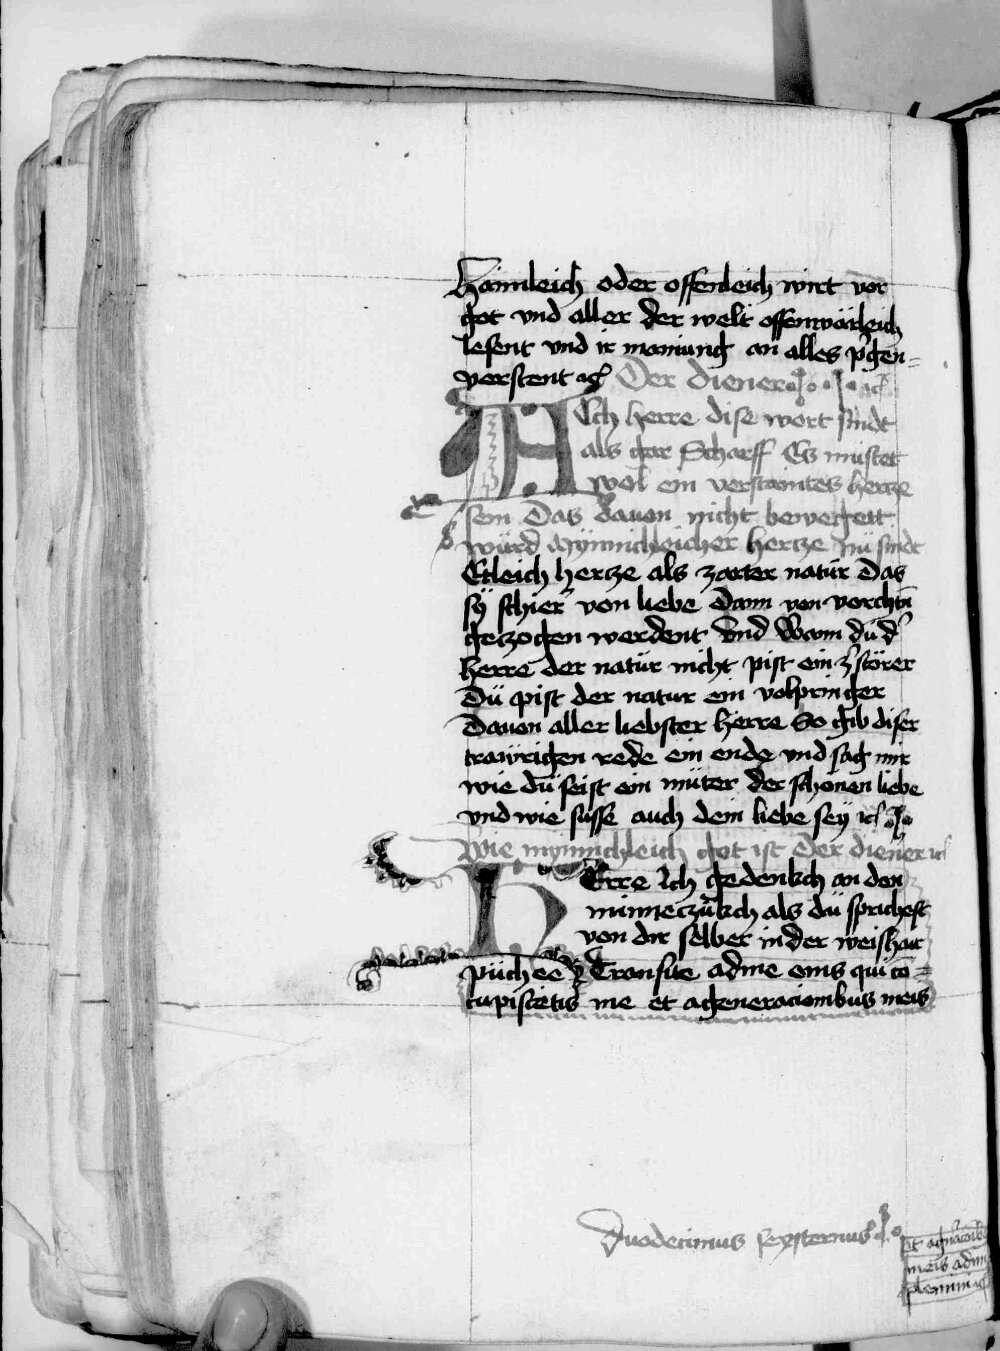 Haimleich oder offenleich wirt vor
got vnd aller der welt offenwärleich
lesent vnd ir maniung an alles
verstent Der diener
Ach herre dise wort sindt
als gar Scharff Es müstet
wol ein verstaintes hercze
sein Das dauon nicht bewegett
würd Mynnichleicher hercze Nü sindt
Etleich hercze als zarter natür Das
sÿ schier von liebe Dann von vorchtn
geczogen werdent Vnd Wann dü
herre der natür nicht pist ein störer
Dü pist der natur ein volpringer
Dauon aller liebster herre So gib diser
trawrigen rede ein ende vnd sag mir
wie dü seist ein müter der schonen liebe
vnd wie susse auch dein liebe seÿ
Wie mÿnnichleich got ist Der diener
Herre Ich gedenkch an den
minneczükch als dü sprichest
von dir selber in der weishait
püchee Transite adme oms qui con=
cupiscetis me et ageneracionibus meis
Duodecimus sexternus
et
meis adim
plemini